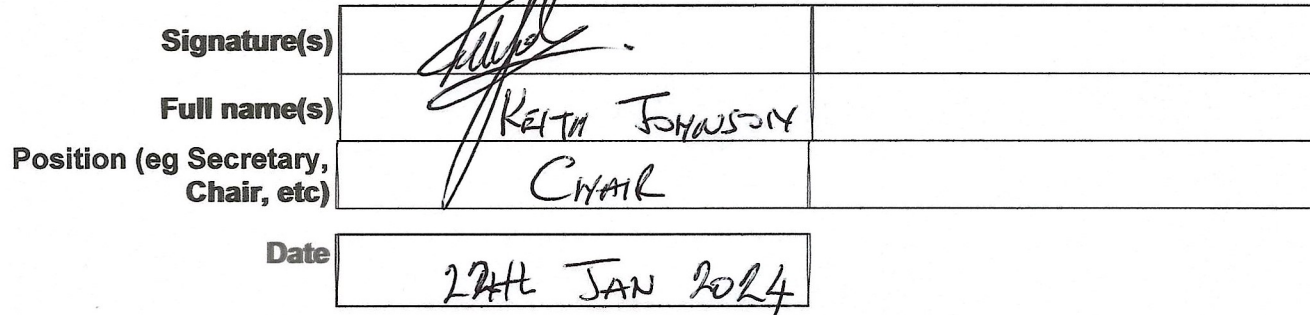 Signature(s)
Full name(s) KEITH JOHNSON
Position (eg Secretary,
Chair, etc) CHAIR
Date JAN 2024